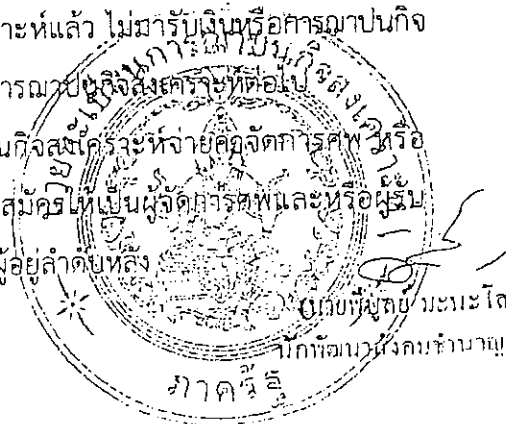 าะห์แล้ว ไม่มารับเงินหรือการฌาปนกิจ
การฌาปนกิจสงเคราะห์ต่อไป
นกิจสงเคราะห์จ่ายค่าจัดการศพ หรือ
สมัครให้เป็นผู้จัดการศพและหรือผู้รับ
ผู้อยู่ลำดับหลัง
นักพัฒนาสังคมชำนาญ
ภาครัฐ